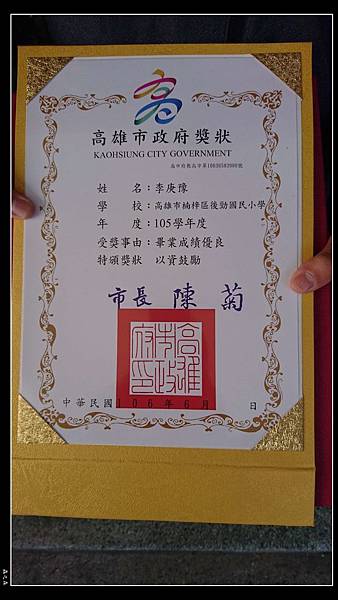 高雄市政府獎狀
KAOHSIUNG CITY GOVERNMENT
高市府教高字第10630583900號
姓 名：李庚豫
學 校：高雄市楠梓區後勁國民小學
年 度：105學年度
受獎事由：畢業成績優良
特頒獎狀 以資鼓勵
市長 陳菊
高雄市政府印
中華民國106年6月 日